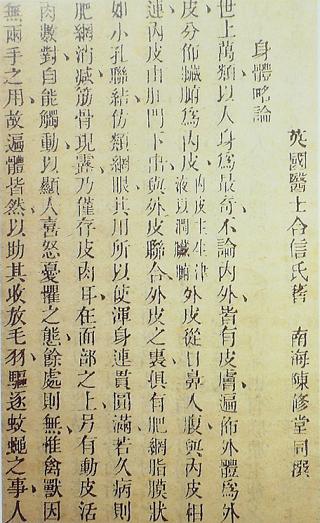 英國醫士合信氏著　南海陳修堂同撰
身體略論
世上萬類以人身爲最奇不論內外皆有皮膚遍佈外體爲外
皮分佈臟腑爲內皮內皮主生津液以潤臟腑外皮從口鼻入腹與內皮相
連內皮由肛門下出與外皮聯合外皮之裏俱有肥網脂膜狀
如小孔聯結仿類網眼其用所以使渾身連貫圓滿若久病則
肥網消減筋骨現露乃僅存皮肉耳在面部之上另有動皮活
肉數對自能觸動以顯人喜怒憂懼之態餘處則無惟禽獸因
無兩手之用故遍體皆然以助其收放毛羽驅逐蚊蠅之事人